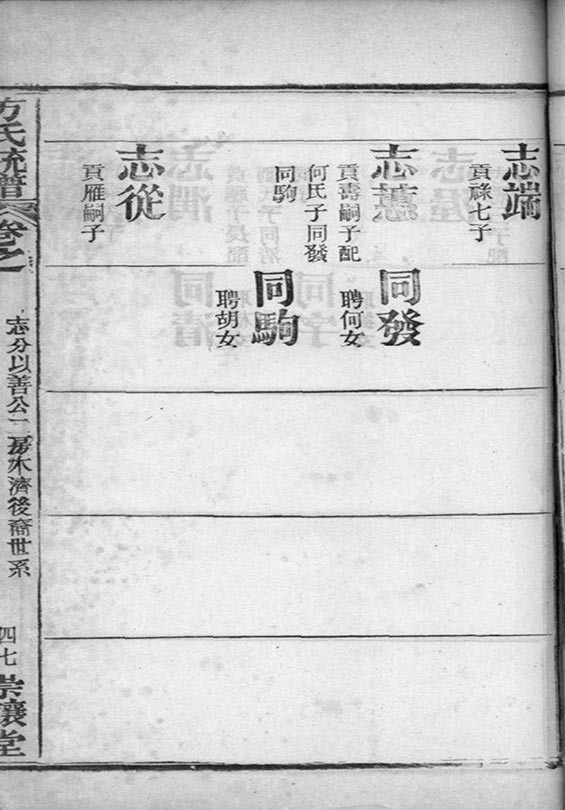 志端
貢祿七子
志蕙
貢壽嗣子配
何氏子同發
同駒
志從
貢雁嗣子
同發
聘何女
同駒
聘胡女
方氏統譜
卷之
志分以善公二房木濟後裔世系
四七
崇讓堂